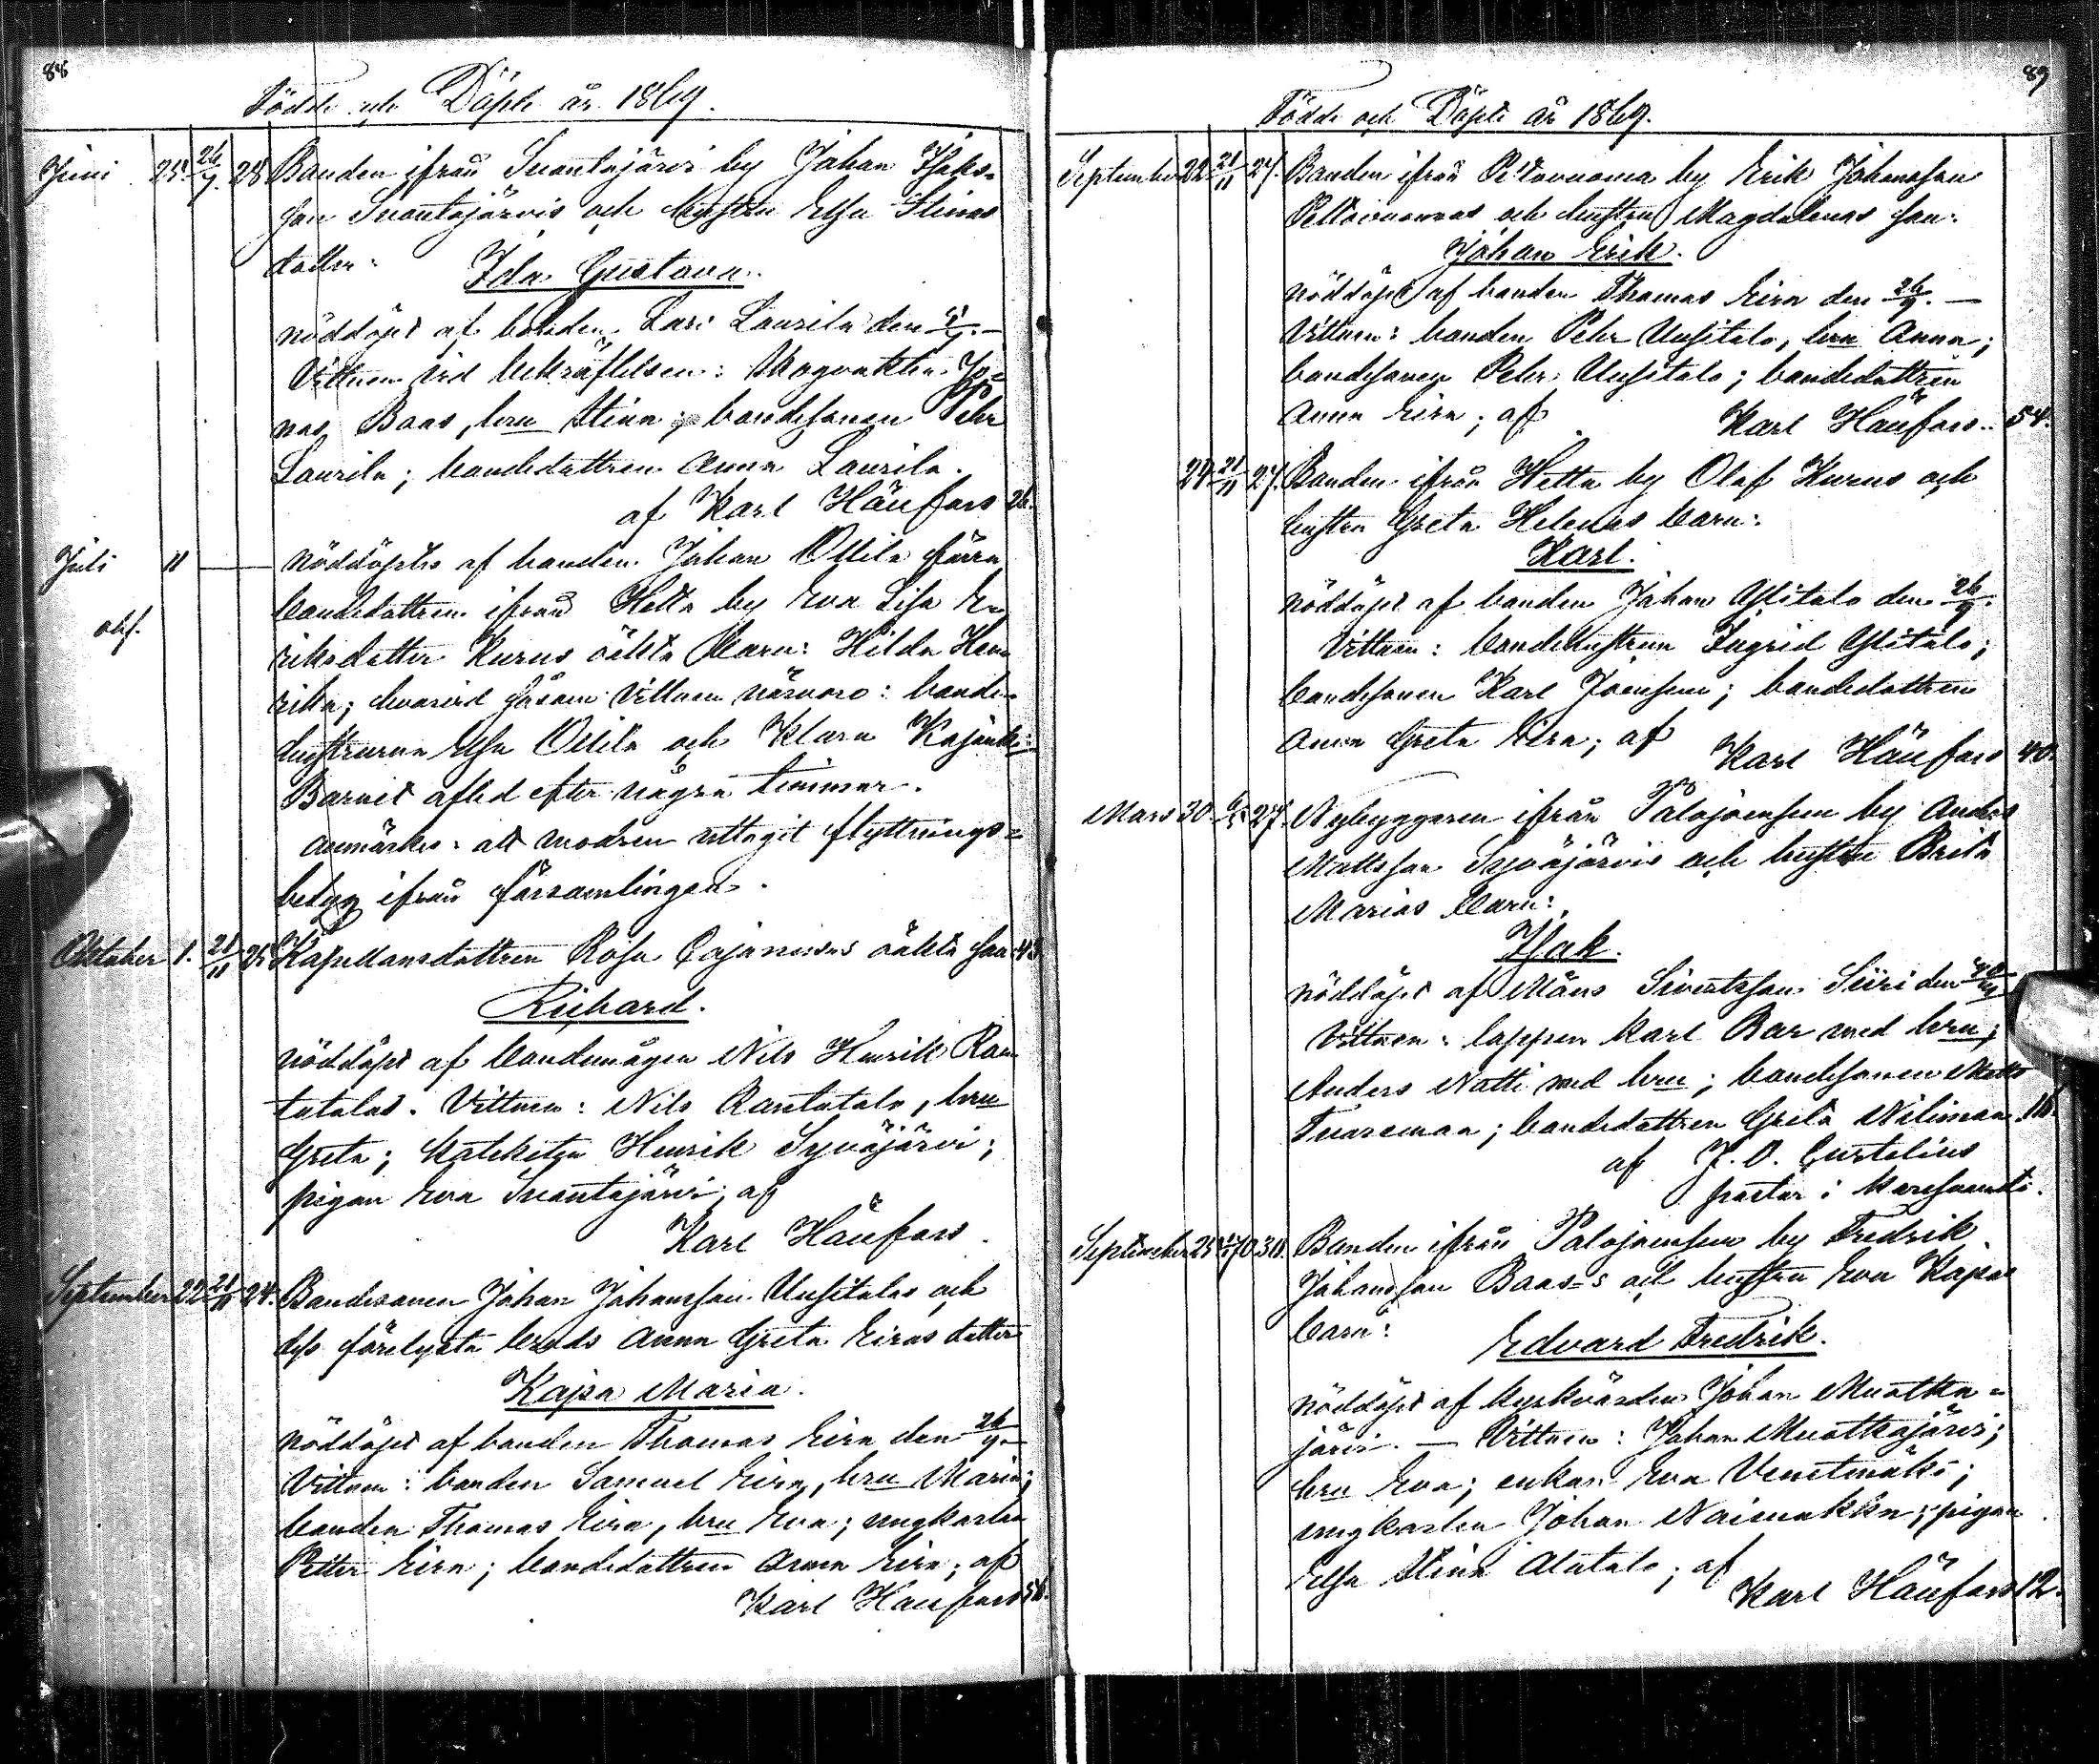 88
Födde och Döpte år 1869.
Juni 25. 26/9. 28 Bonden ifrån Suontajärvi by Johan Isaks-
son Suontajärvis och hustru Elsa Stinas
dotter:
Ida Gustava.
nöddöpt af bonden Lars Laurila den
Vittnen vid bekräftelsen: Skogvakten Jo-
nas Baas, hru Stina; bondesonen Pehr
Laurila; bondedottren Anna Laurila.
af Karl Heikel
Juli 11 — nöddöptes af bonden Johan Ollila förra
bondedottren ifrån Hetta by Eva Lisa E-
obf.
riksdotter Kurus oäkta barn: Hilda Hen
rika; hvarvid såsom vittnen närvoro: bonde-
hustrurna Elsa Ollila och Klara
Barnet afled efter några timmar.
Anmärkes: att modren uttagit flyttnings-
betyg ifrån församlingen.
Oktober 1. 21/11 25 Kapellansdottren Rosa Cajanuses oäkta son 43
Richard.
nöddöpt af bondemågen Nils Henrik Ran
tatalos. Vittnen: Nils Rantatalo, hru
Greta; Kateketen Henrik Syväjärvi;
pigan Eva Suontajärvi; af
Karl
September 22 21/11 24. Bondesonen Johan Johansson Uusitalos och
dess förelysta bruds Anna Greta Eiras dotter
Kajsa Maria.
nöddöpt af bonden Thomas Eira den 26/9.
Vittnen: bonden Samuel Eira, hru Maria;
bonden Thomas Eira, hru Eva; ungkarlen
Petter Eira; bondedottren Anna Eira; af
Karl
89
Födde och Döpte år 1869.
September 22 21/11 27. Bonden ifrån Peltovuoma by Erik Johansson
Peltovuomas och hustru Magdalenas son:
Johan Erik.
nöddöpt af bonden Thomas Eira den 26/9. —
Vittnen: bonden Pehr Uusitalo, hru Anna;
bondesonen Pehr Uusitalo; bondedottren
Anna Eira; af Karl 54.
24. 21/11 27. Bonden ifrån Hetta by Olof Kurus och
hustru Greta Helenas barn:
Karl.
nöddöpt af bonden Johan Ylitalo den 26/9.
Vittnen: bondehustrun Ingrid Ylitalo;
bondesonen Karl Joensuu; bondedottren
Anna Greta Eira; af Karl 40.
Mars 30 27. Nybyggaren ifrån Palojoensuu by Anders
Mattsson Syväjärvis och hustru Brita
Marias barn:
Isak.
nöddöpt af Måns Sivertsson Siiri den
Vittnen: lappen Karl Bar med hru;
Anders Nätti med hru; bondesonen Matts
bondedottren Greta Niliman 16.
af J. O. Curtelius
pastor i
September 25 30. Bonden ifrån Palojoensuu by Fredrik
Johansson Baas-s och hustru Eva Kajsas
barn:
Edvard Fredrik.
nöddöpt af kyrkvärden Johan Muotka-
järvi. — Vittnen: Johan Muotkajärvi;
hru Eva; enkan Eva
ungkarlen Johan Naimakka; pigan
Elsa Stina Alatalo; af Karl 12.